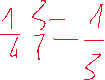 1/4 3/7 = 1/3